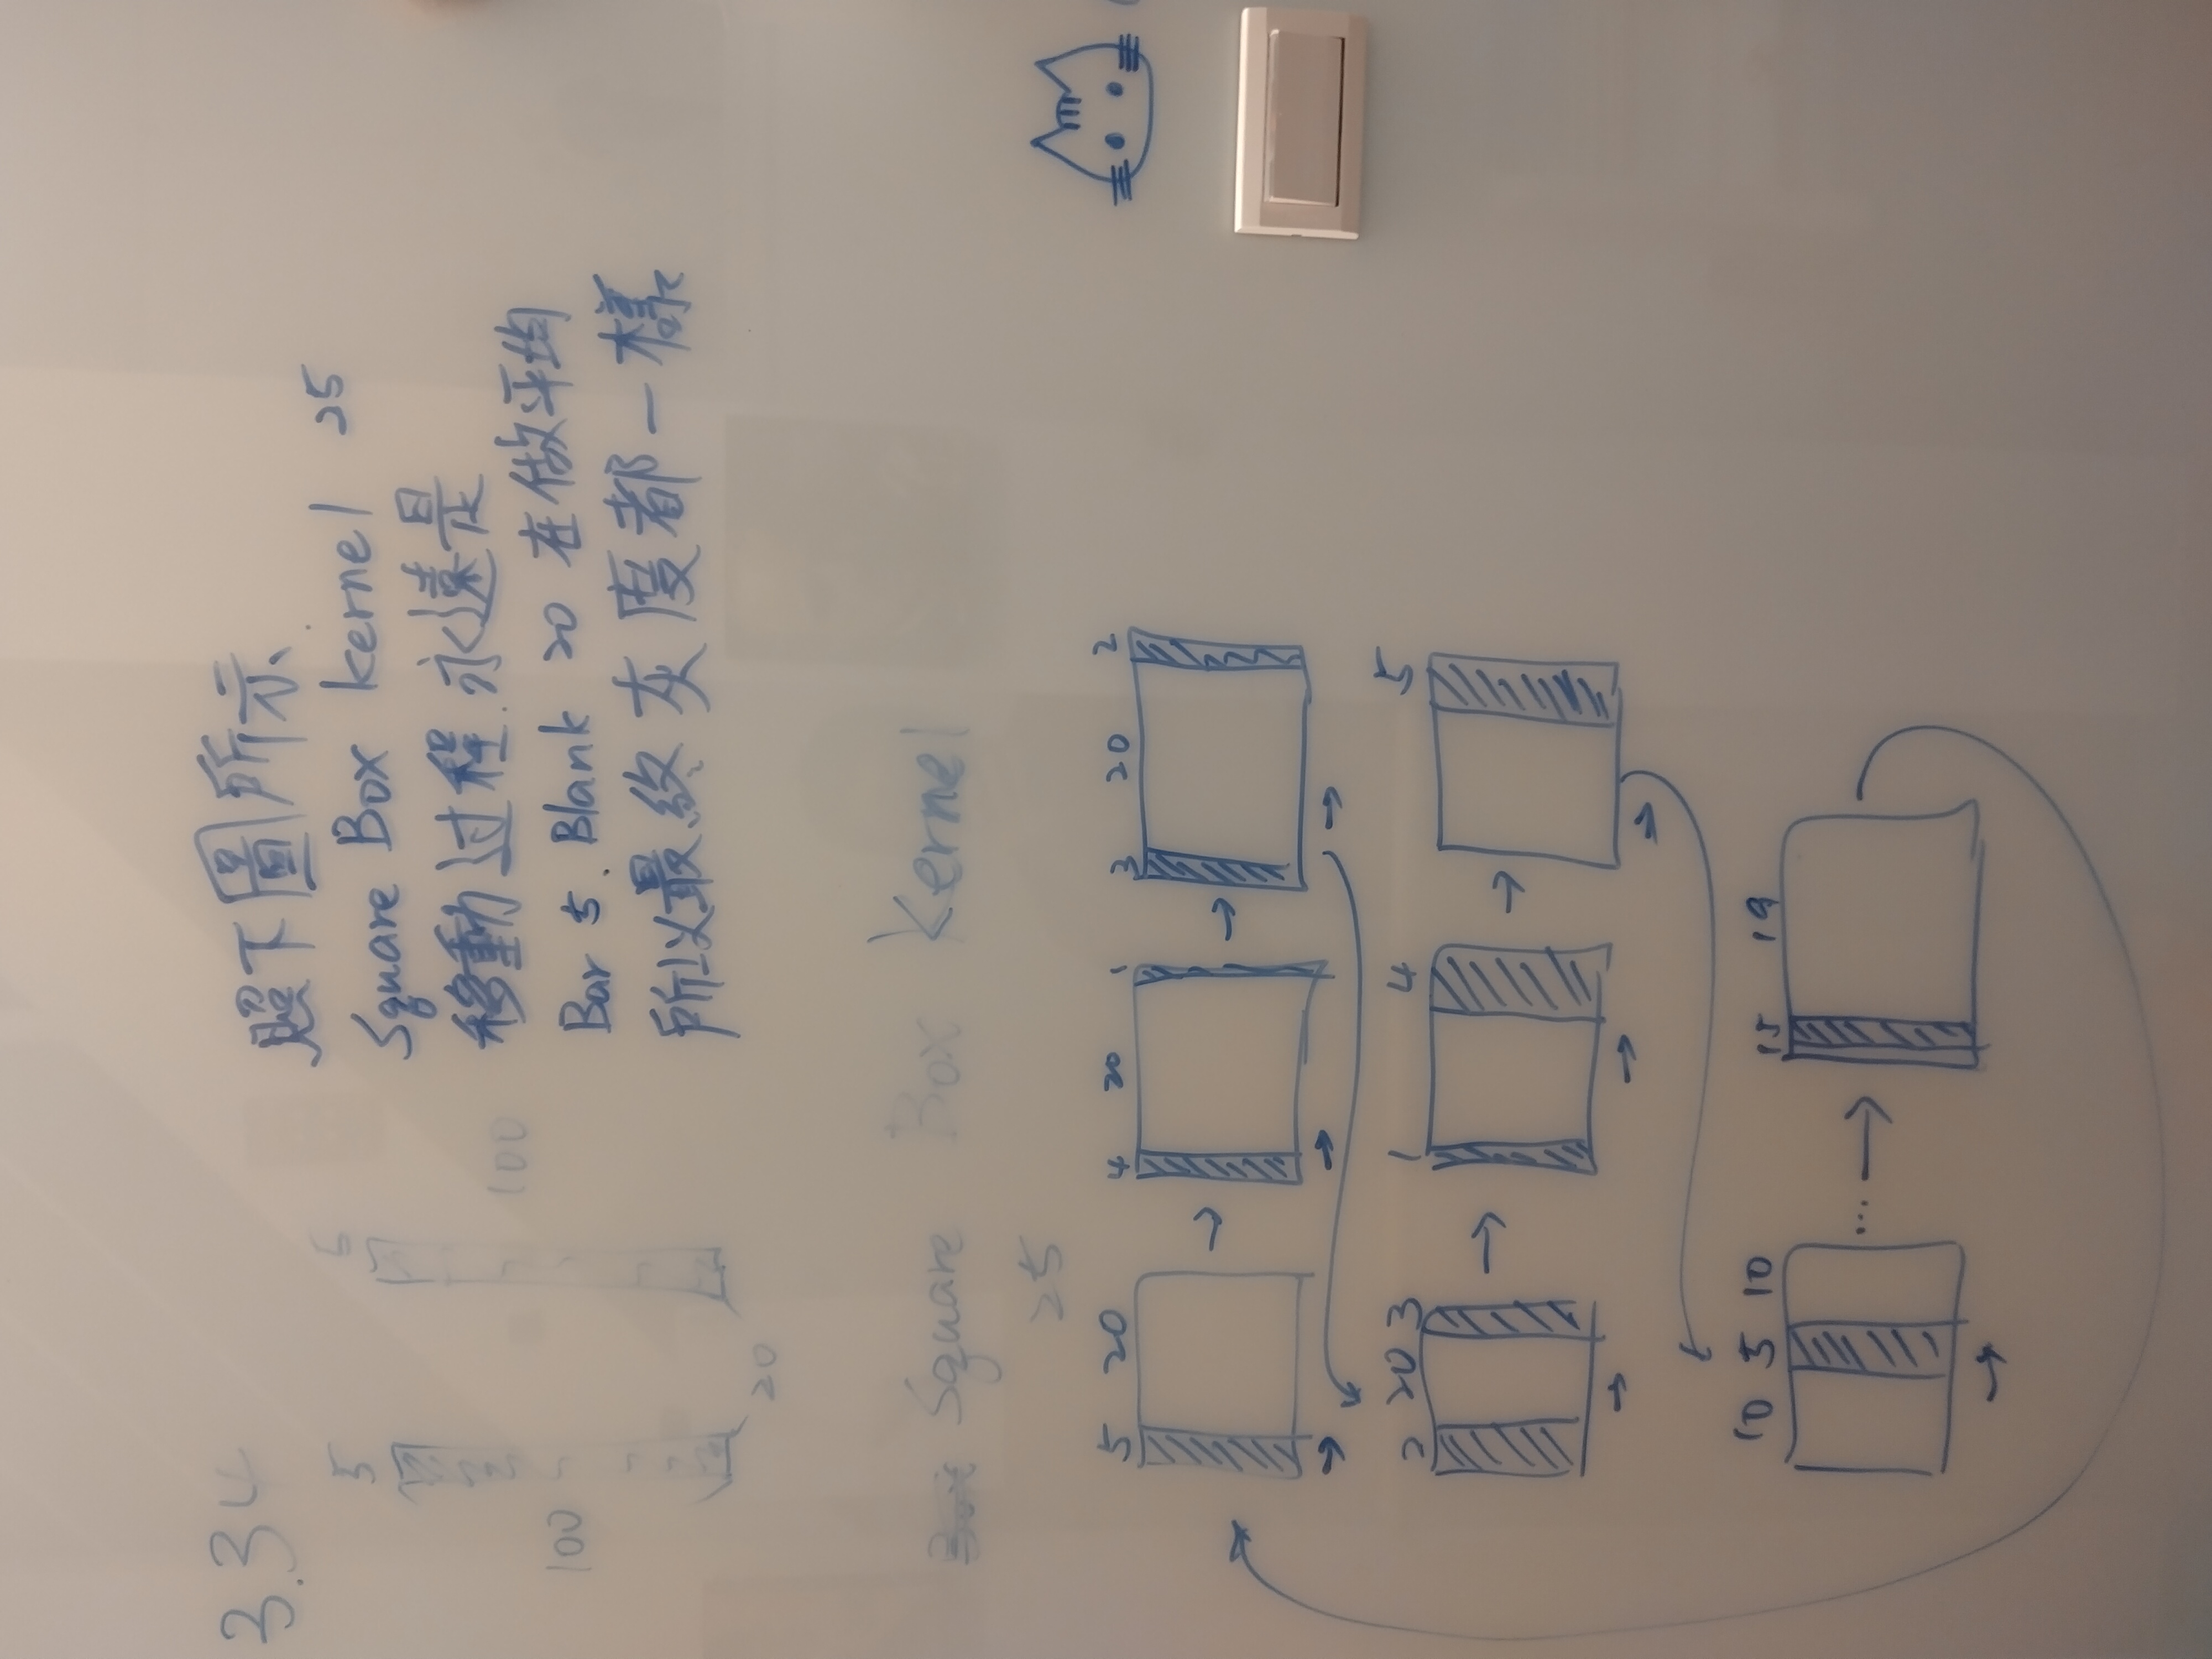 3.34
5 5
100 100
20
照下圖所示
Square Box kernel 25
移動过程.永遠是
Bar 5. Blank 20 在做平均
所以最終灰度都一樣
Square Box Kernel
25
5 20 4 20 1 3 20 2
2 20 3 1 4 5
10 5 10 1 5 19